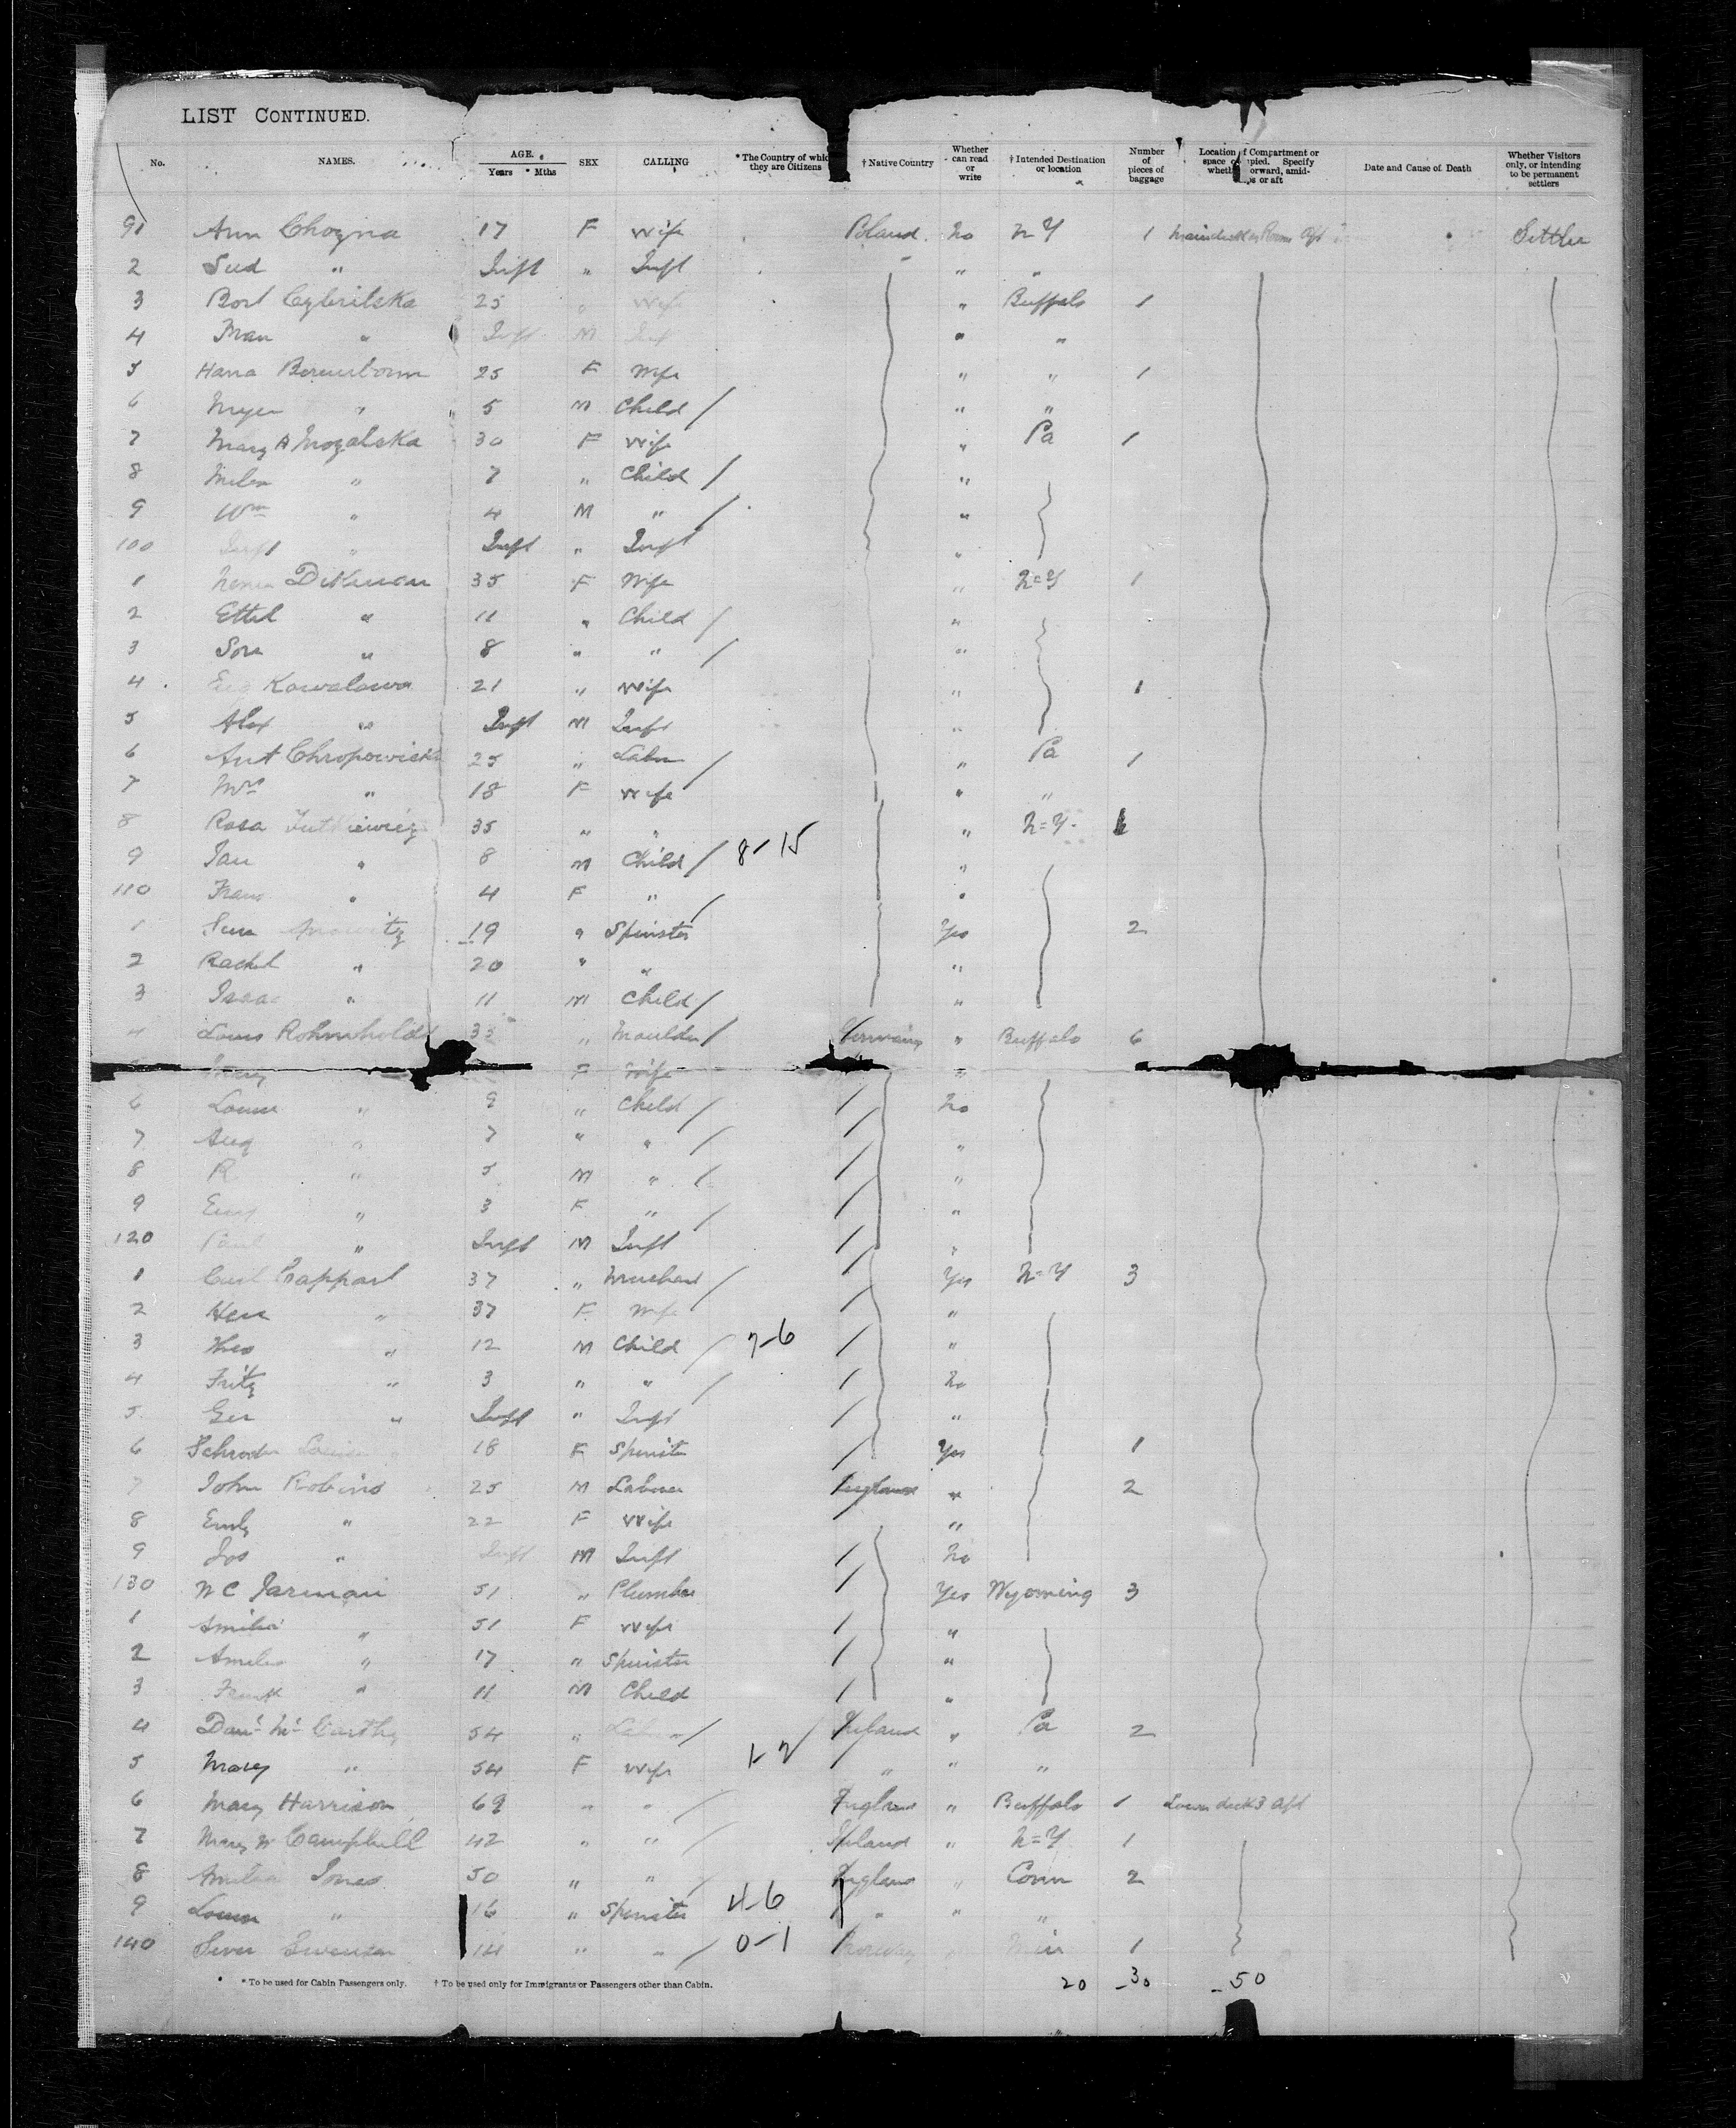 LIST CONTINUED.
No. NAMES. AGE. Years * Mths SEX CALLING * The Country of which they are Citizens † Native Country Whether can read or write † Intended Destination or location Number of pieces of baggage Location of Compartment or space occupied. Specify whether forward, amidships or aft Date and Cause of Death Whether Visitors only, or intending to be permanent settlers
91 Ann Chozna 17 F Wife Poland. No N Y 1 Aft Settler
2 " Inft " Inft " "
3 25 " Wife " Buffalo 1
4 Fran " Inft M Inf " "
5 Hana 25 F Wife " " 1
6 Myer " 5 M Child / " "
7 Mary A Mozalska 30 F Wife " Pa 1
8 " 7 " Child / "
9 Wm " 4 M " / "
100 Inft " Inft " Inft "
1 35 F Wife " N=Y 1
2 Ettel " 11 " Child / "
3 Sore " 8 " " / "
4 Kowalowa 21 " Wife " 1
5 Alex " Inft M Inft "
6 Ant Chropowiski 25 " Labr / " Pa 1
7 Mrs " 18 F Wife " "
8 Rosa 35 " " " N=Y.
9 Jan " 8 M Child / 8-15 "
110 Franc " 4 F " / "
1 19 " Spinster Yes 2
2 Rachel " 20 " " "
3 Isaac " 11 M Child / "
4 Louis Rohmholds 35 " Moulder / Germany " Buffalo 6
F Wife "
6 Louise " 9 " Child / No
7 Aug " 7 " " / "
8 R " 5 M " / "
9 " 3 F " / "
120 Paul " Inft M Inft "
1 Carl Cappart 37 " / Yes N=Y 3
2 " 37 F Wife "
3 " 12 M Child / 7-6 "
4 Fritz " 3 " " / No
5 Ger " Inft " Inft "
6 Schroder Louise 18 F Spinster Yes 1
7 John Robins 25 M Labourer England " 2
8 Emly " 22 F Wife "
9 Jos " Inft M Inft No
130 W C Jarman 51 " Plumber Yes Wyoming 3
1 Amelia " 51 F Wife "
2 Amelia " 17 " Spinster "
3 Frank " 11 M Child "
4 Danl McCarthy 54 " Labour / Ireland " Pa 2
5 Mary " 54 F Wife 1-7 " " "
6 Mary Harrison 69 " " / England " Buffalo 1 Lower deck 3 Aft
7 Mary Campbell 42 " " / Ireland " N=Y 1
8 Jones 50 " " / England " Conn 2
9 " 16 " Spinster 4-6 " " "
140 Swensen 14 " " / 0-1 Norway " 1
* To be used for Cabin Passengers only. † To be used only for Immigrants or Passengers other than Cabin.
20 -30 -50